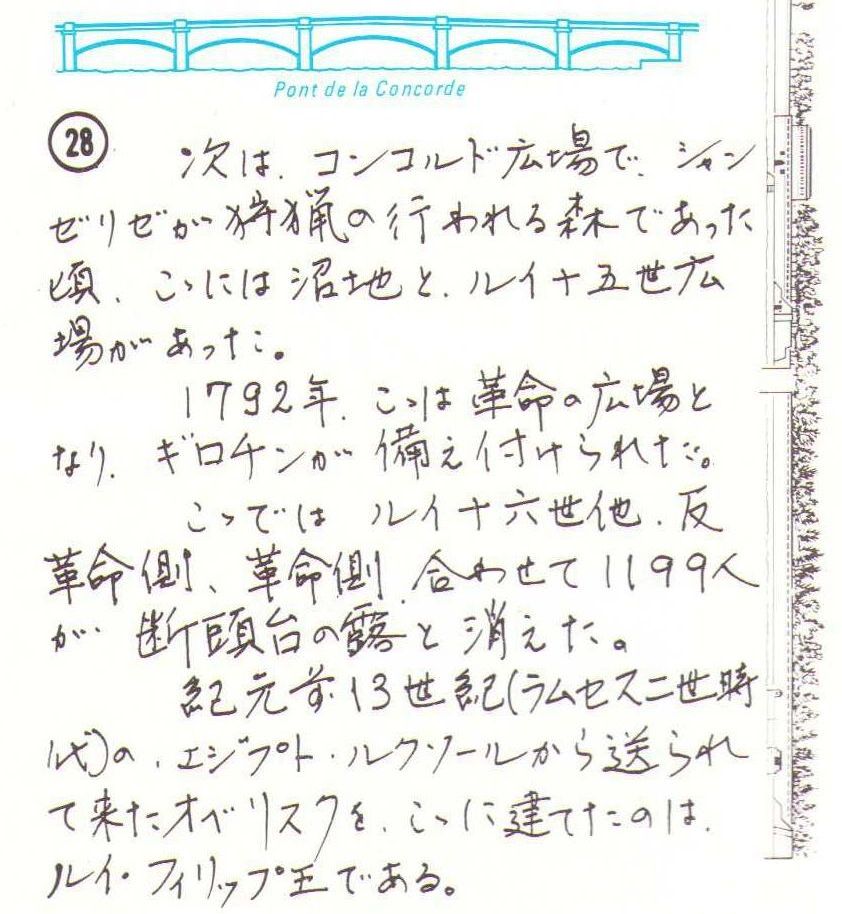 Pont de la Concorde
28
次は、コンコルド広場で、シャン
ゼリゼが狩猟の行われる森であった
頃、こゝには沼地と、ルイ十五世広
場があった。
1792年、こゝは革命の広場と
なり、ギロチンが備え付けられた。
こゝでは ルイ十六世他、反
革命側、革命側、合わせて1199人
が 断頭台の露と消えた。
紀元前13世紀(ラムセス二世時
代)の、エジプト・ルクソールから送られ
て来たオベリスクを、こゝに建てたのは、
ルイ・フィリップ王である。